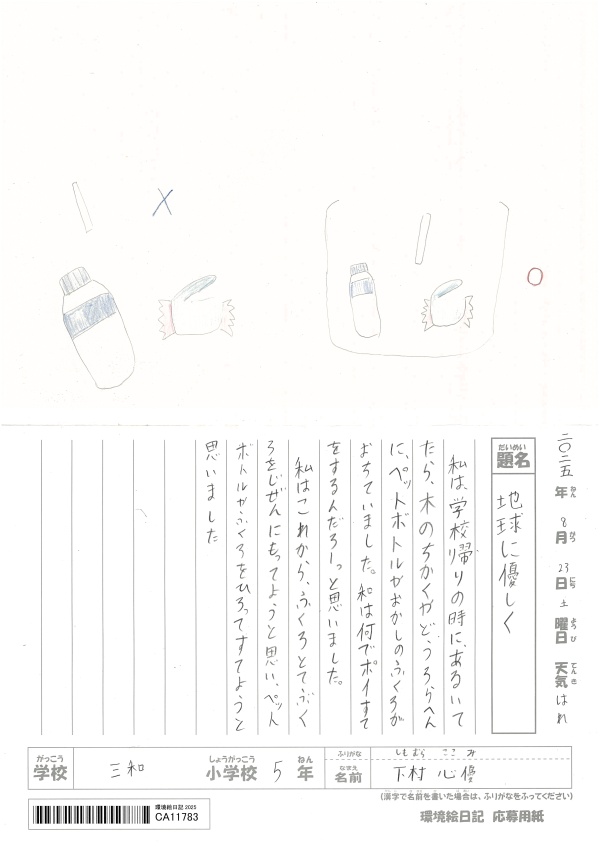 二〇二五年 8月 23日 土曜日 天気 はれ
ねん がつ にち ようび てんき
だいめい
題名
地球に優しく
私は、学校帰りの時に、あるいて
たら、木のちかくやどうろらへん
に、ペットボトルがおかしのふくろが
おちていました。和は何でポイすて
をするんだろーっと思いました。
私はこれから、ふくろとてぶく
ろをじぜんにもってようと思い、ペット
ボトルがふくろをひろってすてようと
思いました
がっこう
学校
三和
しょうがっこう
小学校
5
ねん
年
ふりがな
しもむら ここみ
なまえ
名前
下村 心優
(漢字で名前を書いた場合は、ふりがなをふってください)
環境絵日記 2025
CA11783
環境絵日記 応募用紙